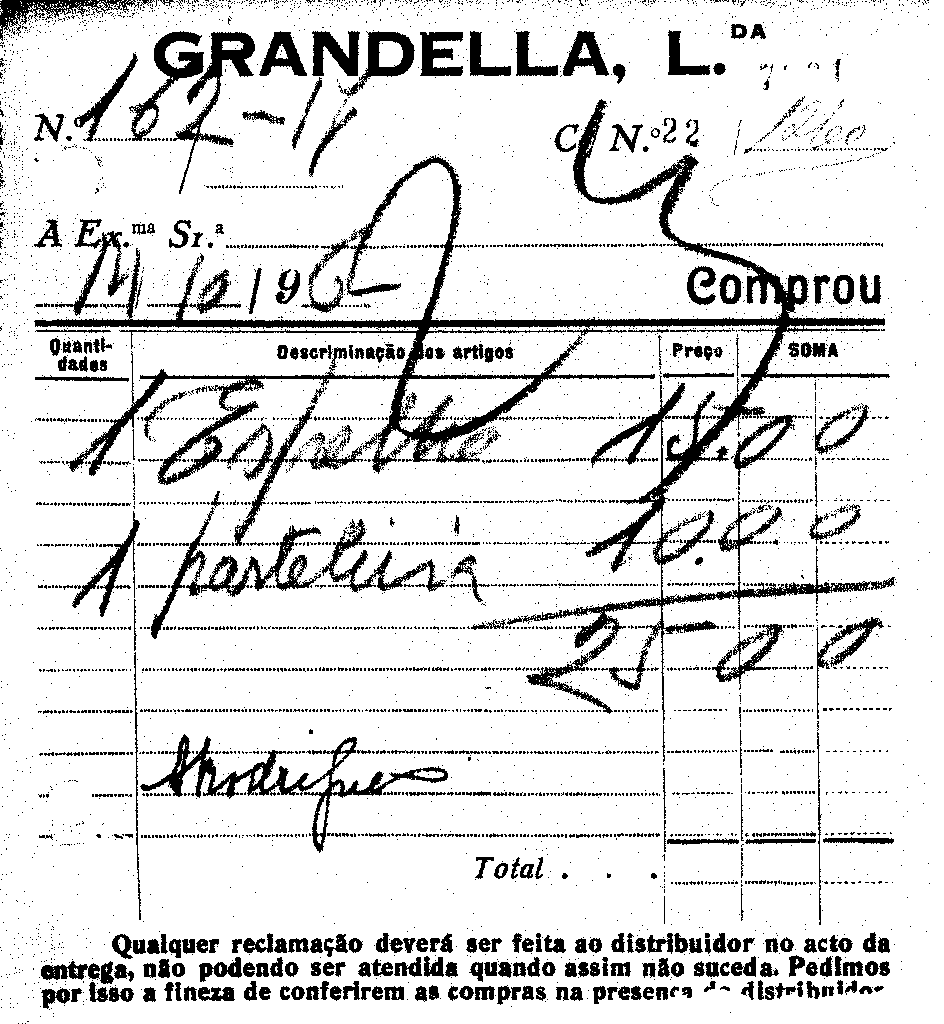 GRANDELLA, L.DA
N.º 167-18
C/ N.º 22
A Ex.ma Sr.a
/ 196
Comprou
Quanti-dades Descriminação dos artigos Preço SOMA
1 Espelho 15.00
1 pasteleira 10.00
25 00
ARodrigues
Total . . .
Qualquer reclamação deverá ser feita ao distribuidor no acto da
entrega, não podendo ser atendida quando assim não suceda. Pedimos
por isso a fineza de conferirem as compras na presença do distribuidor.